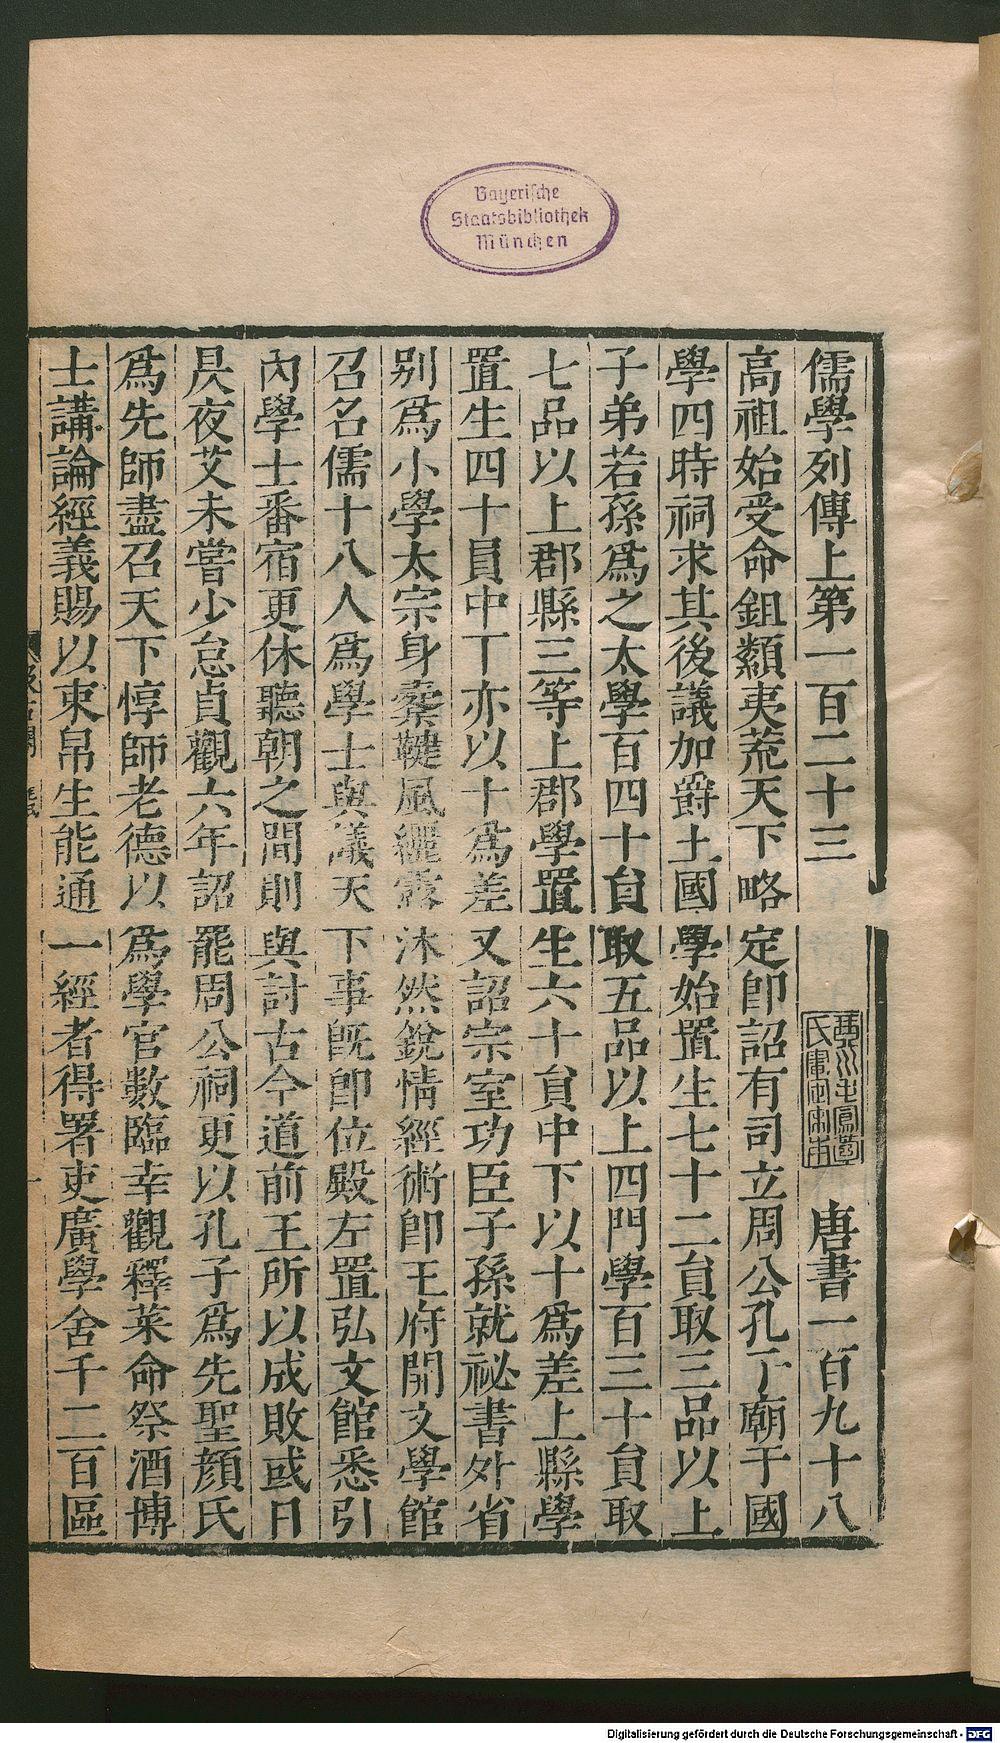 Bayerische
Staatsbibliothek
München
儒學列傳上第一百二十三 唐書一百九十八
高祖始受命鉏纇夷荒天下略定卽詔有司立周公孔丁廟于國
學四時祠求其後議加爵土國學始置生七十二貟取三品以上
子弟若孫爲之太學百四十貟取五品以上四門學百三十貟取
七品以上郡縣三等上郡學置生六十貟中下以十爲差上縣學
置生四十員中丁亦以十爲差又詔宗室功臣子孫就祕書外省
别爲小學太宗身櫜鞬風纚露沐然銳情經術卽王府開文學館
召名儒十八人爲學士與議天下事旣卽位殿左置弘文館悉引
內學士番宿更休聽朝之間則與討古今道前王所以成敗或日
昃夜艾未嘗少怠貞觀六年詔罷周公祠更以孔子爲先聖顏氏
爲先師盡召天下惇師老德以爲學官數臨幸觀釋菜命祭酒博
士講論經義賜以束帛生能通一經者得署吏廣學舍千二百區
Digitalisierung gefördert durch die Deutsche Forschungsgemeinschaft - DFG